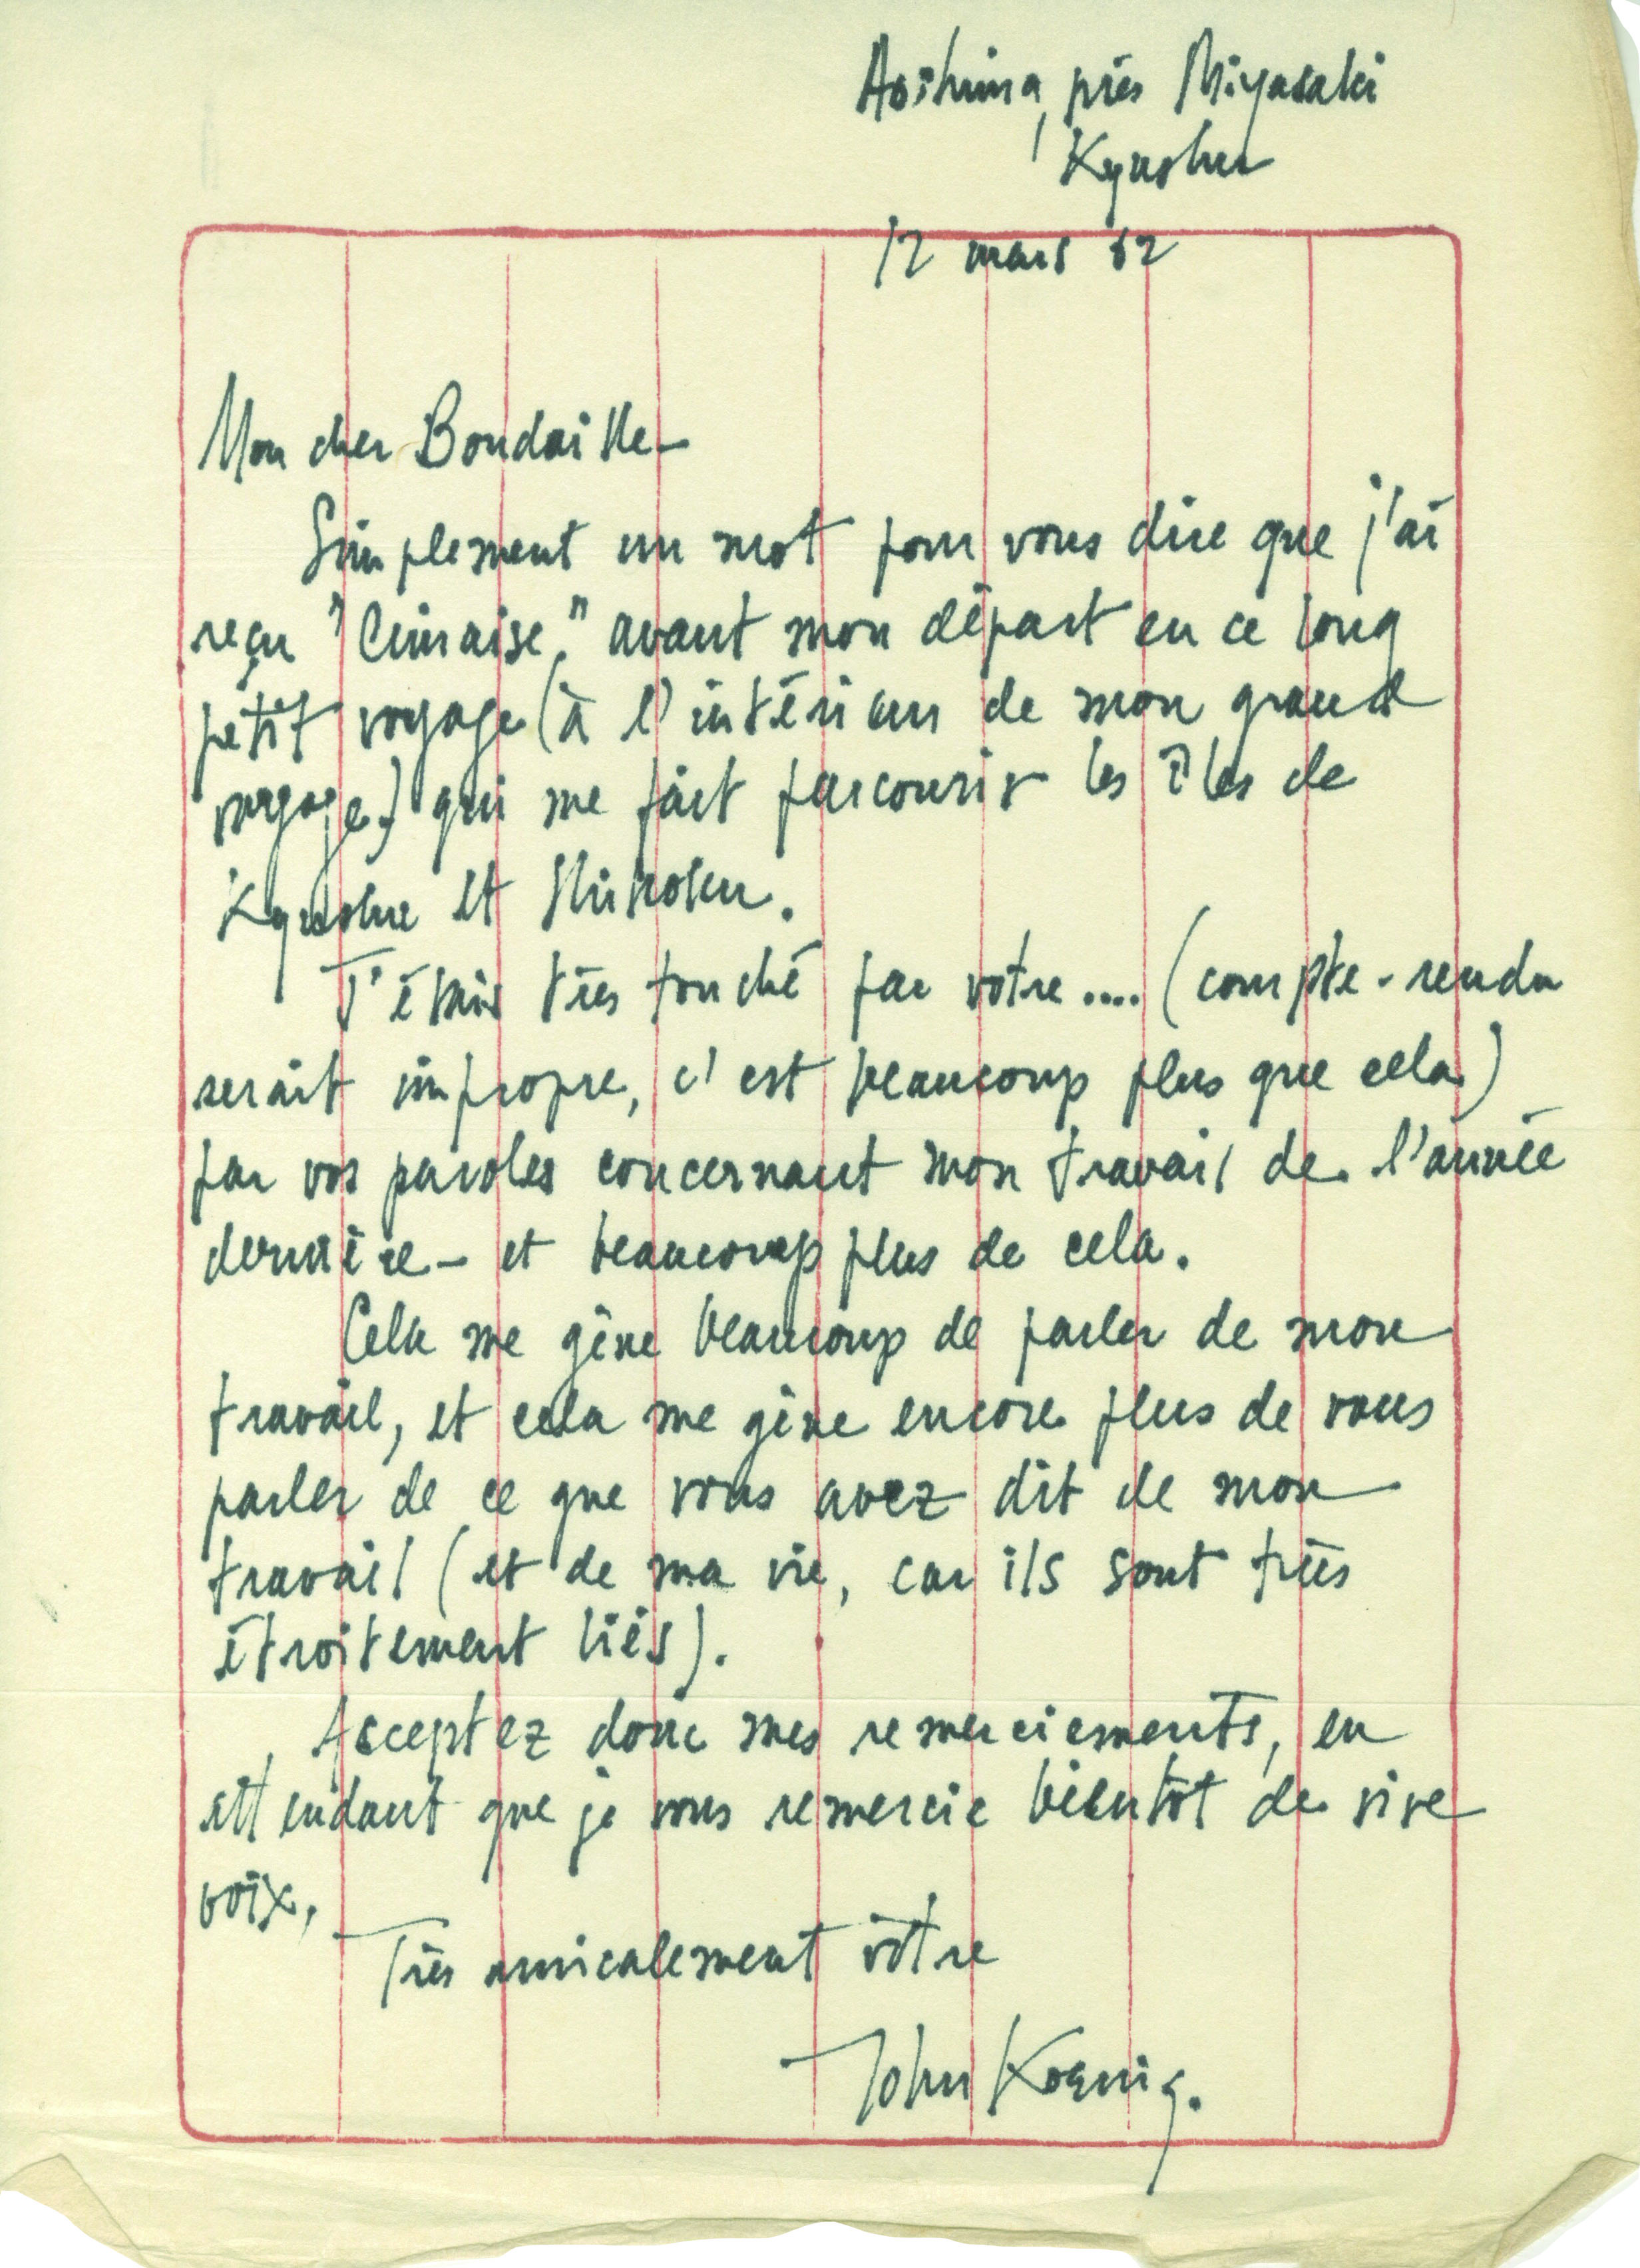 Aoshima, près Miyasaki
Kyushu
12 mars 62
Mon cher Boudaille –
Simplement un mot pour vous dire que j'ai
reçu "Cimaise," avant mon départ en ce long
petit voyage (à l'intérieur de mon grand
voyage) qui me fait parcourir les îles de
Kyushu et Shikoku.
J'étais très touché par votre.... (compte-rendu
serait impropre, c'est beaucoup plus que cela)
par vos paroles concernant mon travail de l'année
dernière – et beaucoup plus de cela.
Cela me gêne beaucoup de parler de mon
travail, et cela me gêne encore plus de vous
parler de ce que vous avez dit de mon
travail (et de ma vie, car ils sont très
étroitement liés).
Acceptez donc mes remerciements, en
attendant que je vous remercie bientôt de vive
voix,
Très amicalement vôtre
John Koenig.